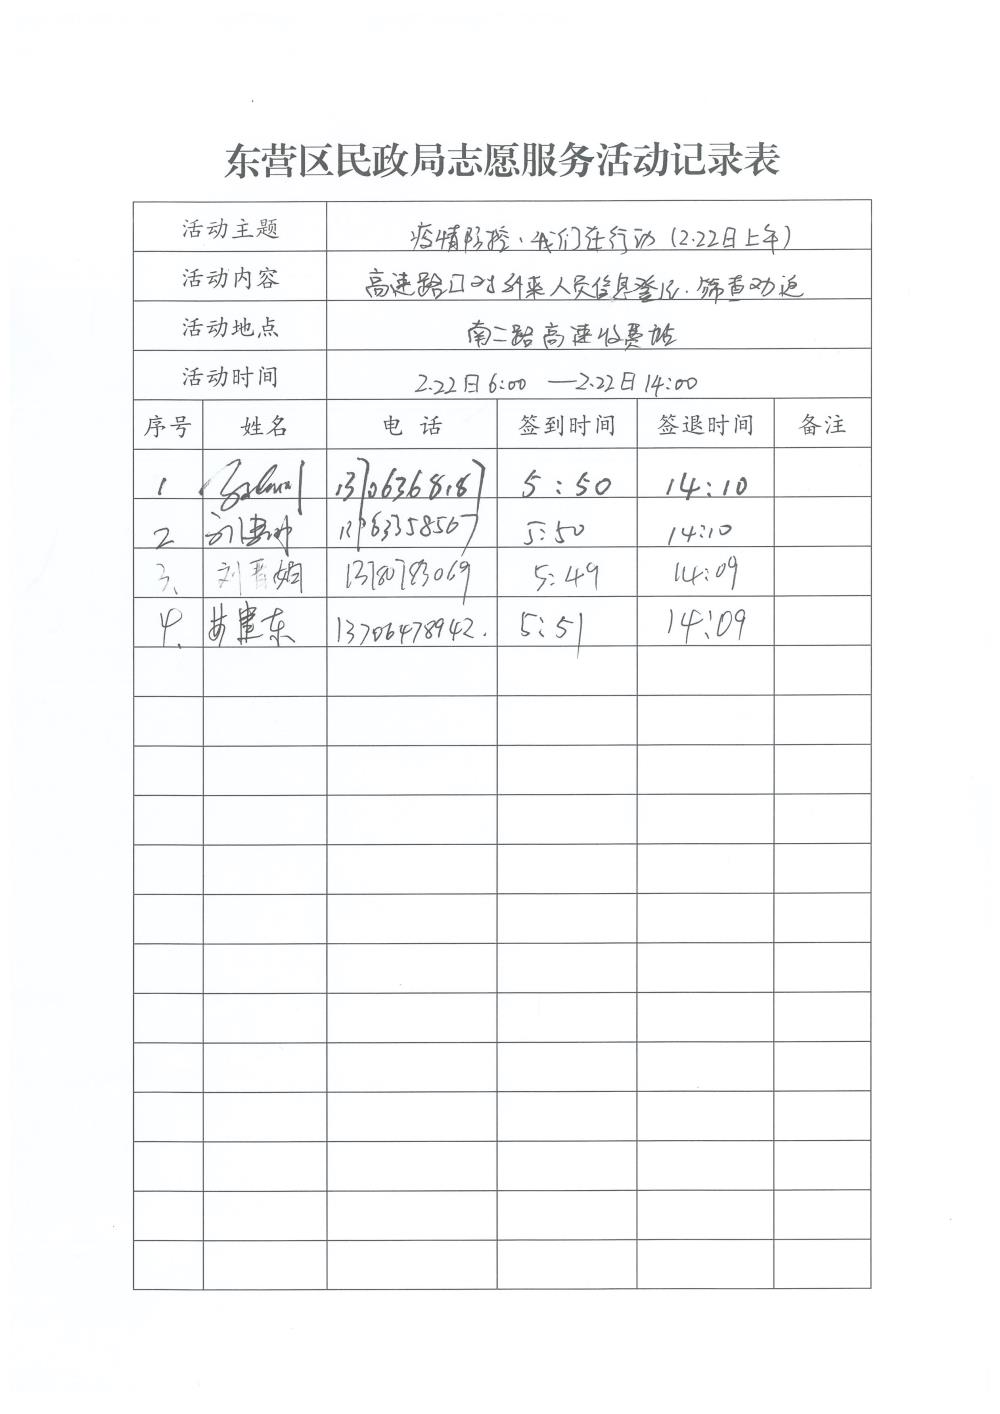 东营区民政局志愿服务活动记录表
活动主题 疫情防控、我们在行动（2.22日上午）
活动内容 高速路口对外来人员信息登记、筛查劝返
活动地点 南二路高速收费站
活动时间 2.22日6:00 —2.22日14:00
序号 姓名 电话 签到时间 签退时间 备注
1 5:50 14:10
2 5:50 14:10
3、 刘 13780783069 5:49 14:09
4. 建东 13706478942. 5:51 14:09